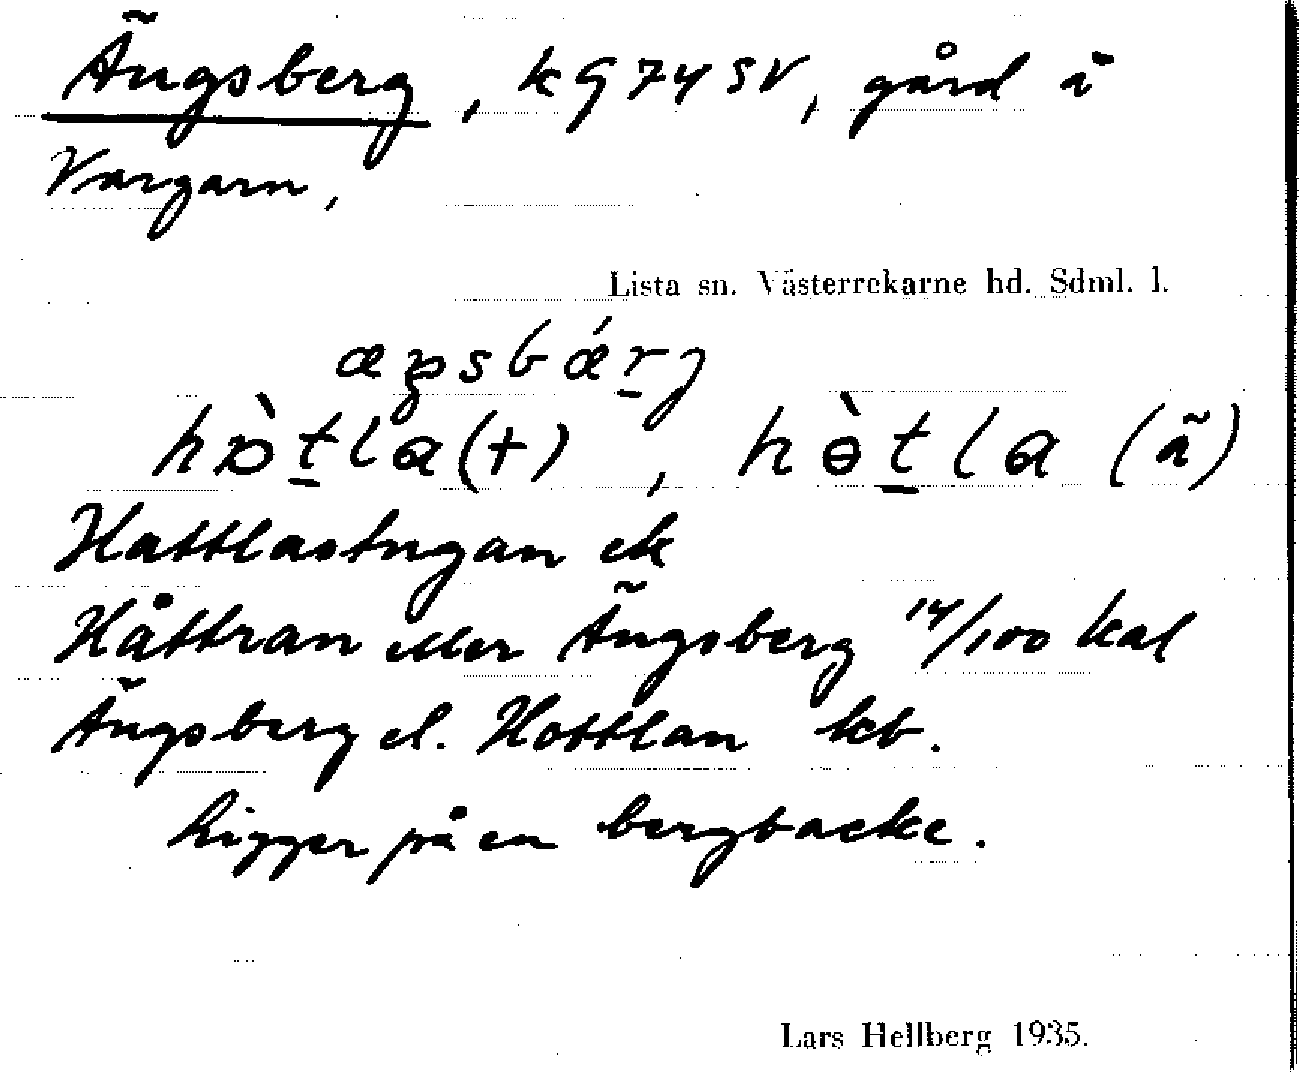 Ängsberg, kg 74 SV, gård å
Vargarn,
Lista sn. Västerrekarne hd. Sdml. l.
æŋsbǽrj
hɔ̀tla(t), hɵ̀tla (ä)
Hattlastugan ek
Håttran eller Ängsberg 14/100 kal
Ängsberg el. Hottlan kb.
Ligger på en bergbacke.
Lars Hellberg 1935.